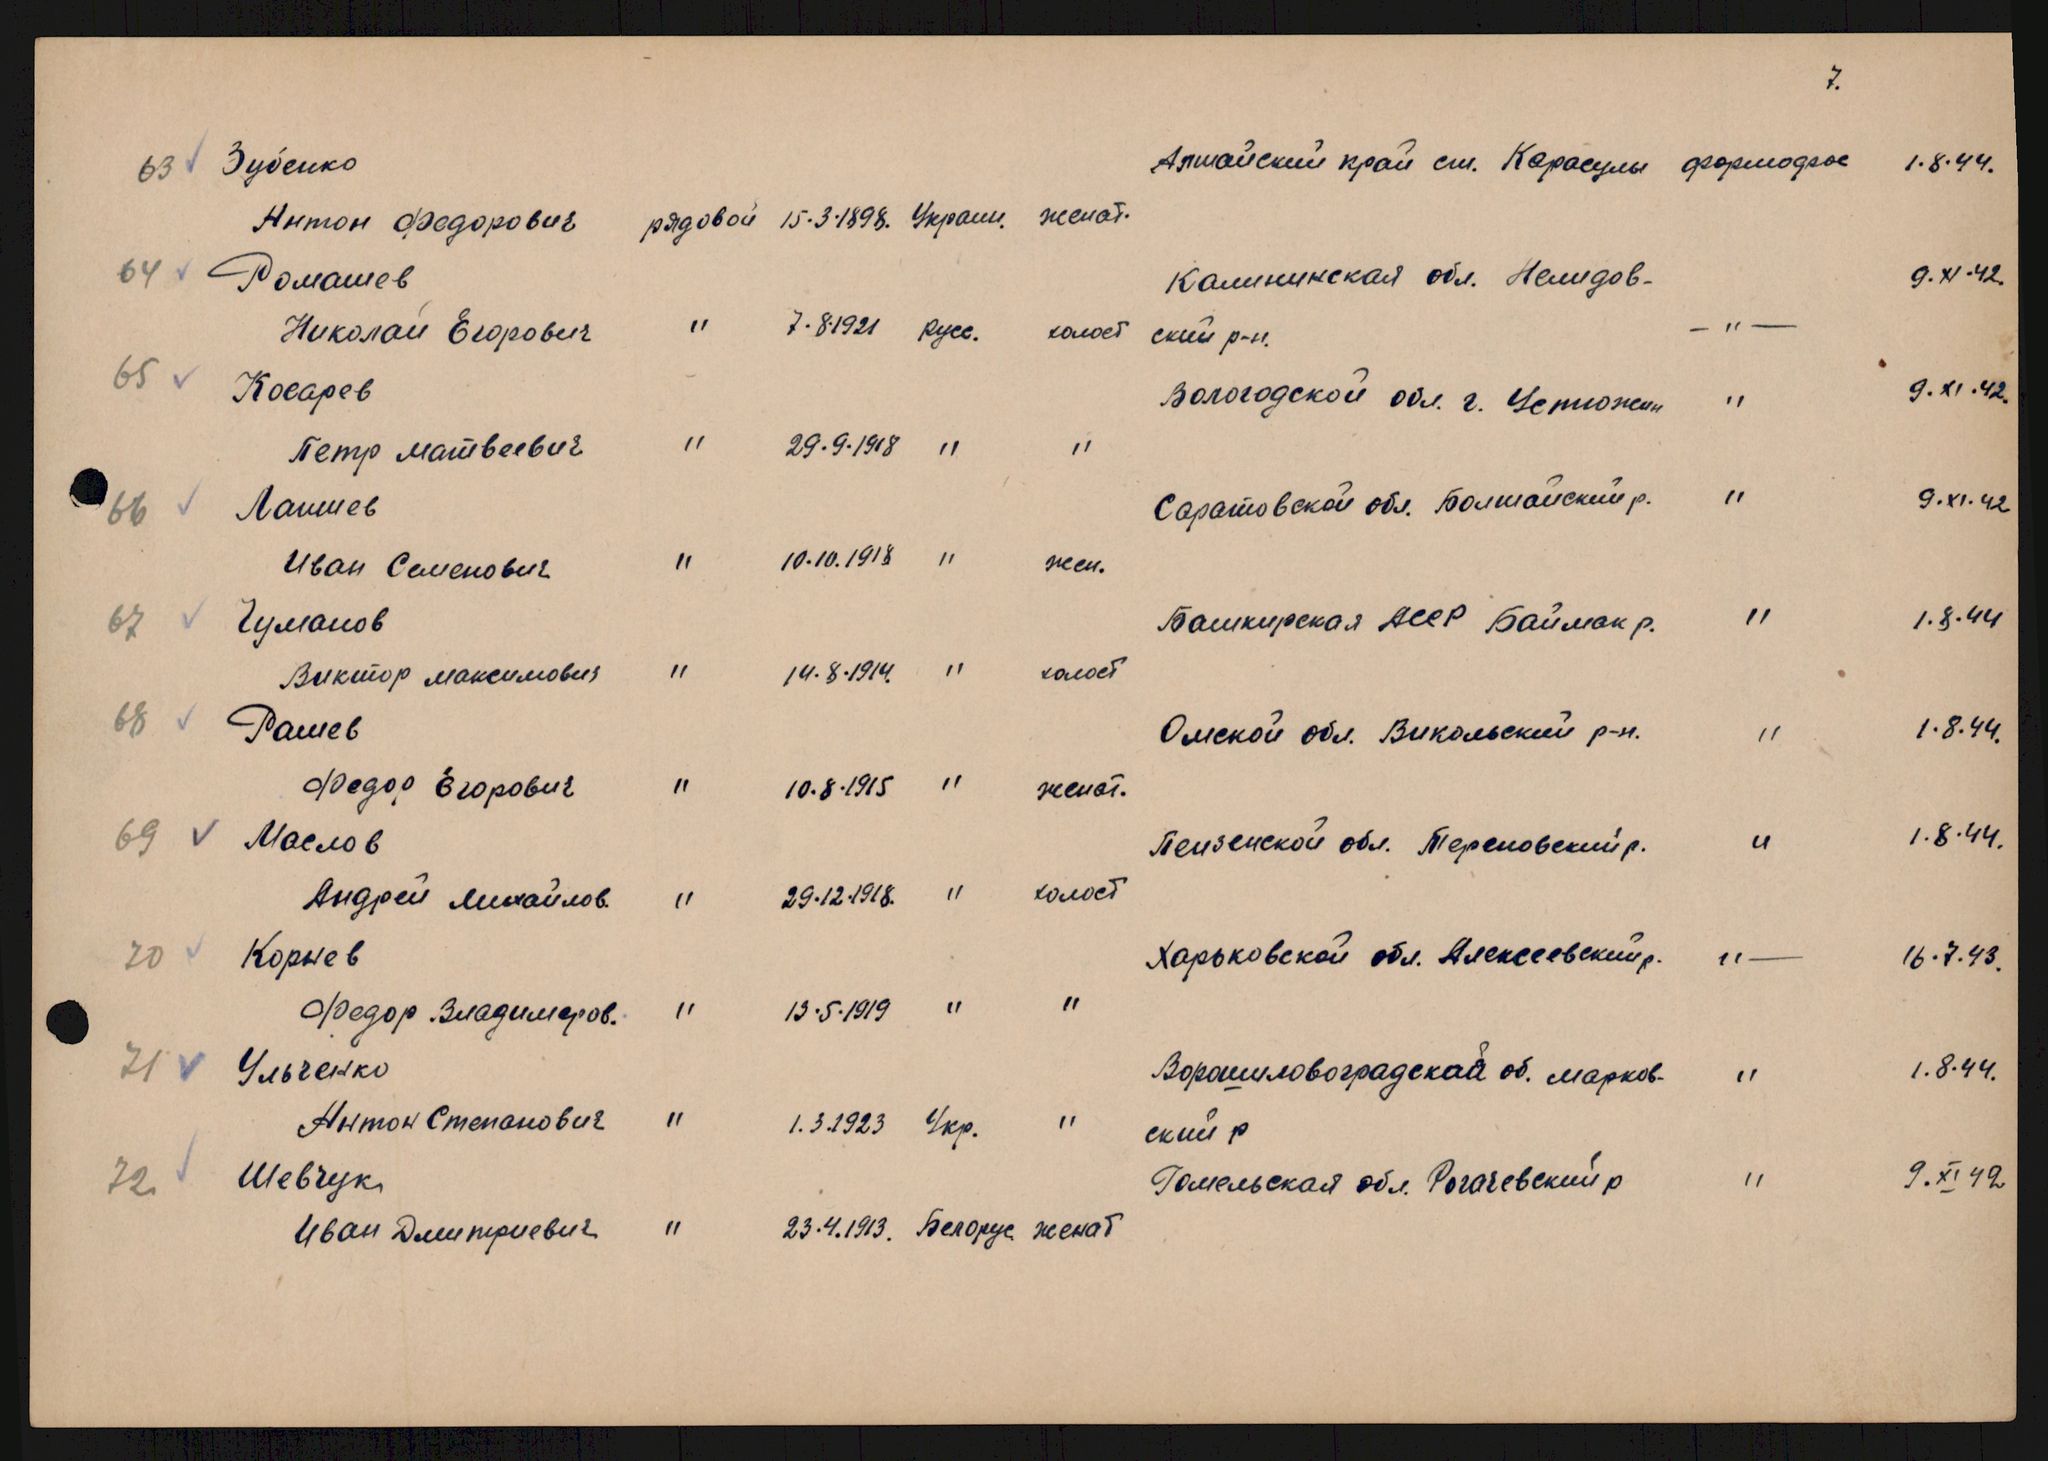 7.
63 Зубенко Алтайский край ст. Карасулы 1.8.44.
Антон Федорович рядовой 15.3.1898. Украин. женат.
64 Ромашев Калининская обл. Нелидов- 9.XI.42.
Николай Егорович " 7.8.1921 русс. холост ский р-н. — " —
65 Косарев Вологодской обл. г. Устюжин " 9.XI.42.
Петр Матвеевич " 29.9.1918 " "
66 Лапшев Саратовской обл. Болтайский р. " 9.XI.42
Иван Семенович " 10.10.1918 " жен.
67 Чуманов Башкирская АССР Баймак р. " 1.8.44
Виктор Максимович " 14.8.1914. " холост
68 Рашев Омской обл. Викольский р-н. " 1.8.44.
Федор Егорович " 10.8.1915 " женат.
69 Маслов Пензенской обл. Терновский р. " 1.8.44.
Андрей Михайлов. " 29.12.1918. " холост
70 Корнев Харьковской обл. Алексеевский р. " — 16.7.43.
Федор Владимиров. " 13.5.1919 " "
71 Ульченко Ворошиловоградской об. Марков- " 1.8.44.
Антон Степанович " 1.3.1923 Укр. " ский р
72. Шевчук Гомельская обл. Рогачевский р " 9.XI 42
Иван Дмитриевич " 23.4.1913. Белорус. женат